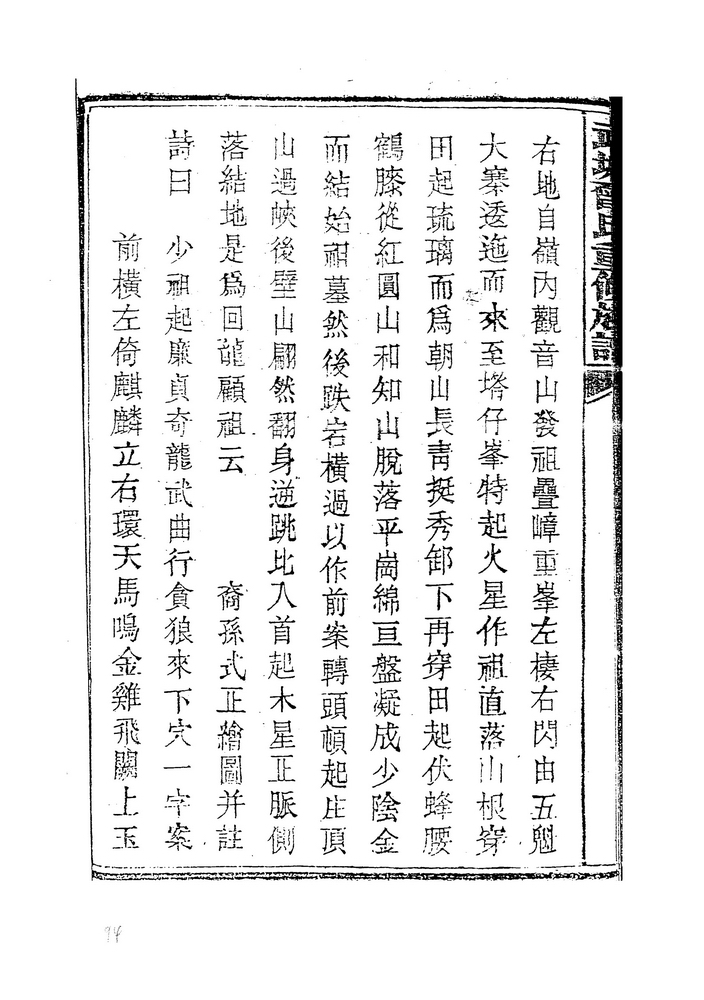 右地自嶺內觀音山發祖疊嶂重峯左棲右閃由五魁
大寨逶迤而來至塔仔峯特起火星作祖直落山根穿
田起琉璃而爲朝山長靑挺秀卸下再穿田起伏蜂腰
鶴膝從紅圓山和知山脫落平崗綿亘盤凝成少陰金
而結始祖墓然後跌岩橫過以作前案轉頭頓起庄頂
山過峽後壁山翩然翻身逆跳比入首起木星正脈側
落結地是爲回龍顧祖云 裔孫式正繪圖并註
詩曰 少祖起廉貞奇龍武曲行貪狼來下穴一字案
前橫左倚麒麟立右環天馬鳴金雞飛關上玉
曾氏重修族譜
94